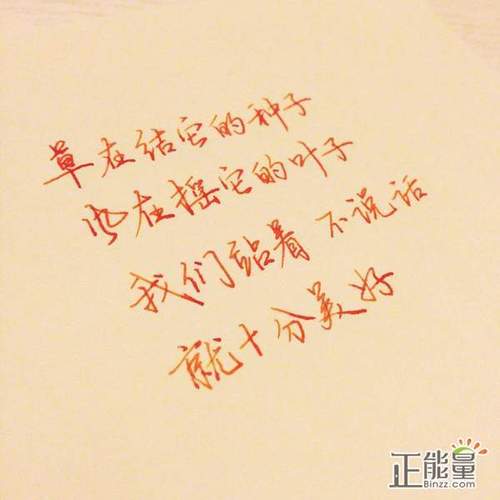 草在结它的种子
风在摇它的叶子
我们站着 不说话
就十分美好
正能量
Binzz.com